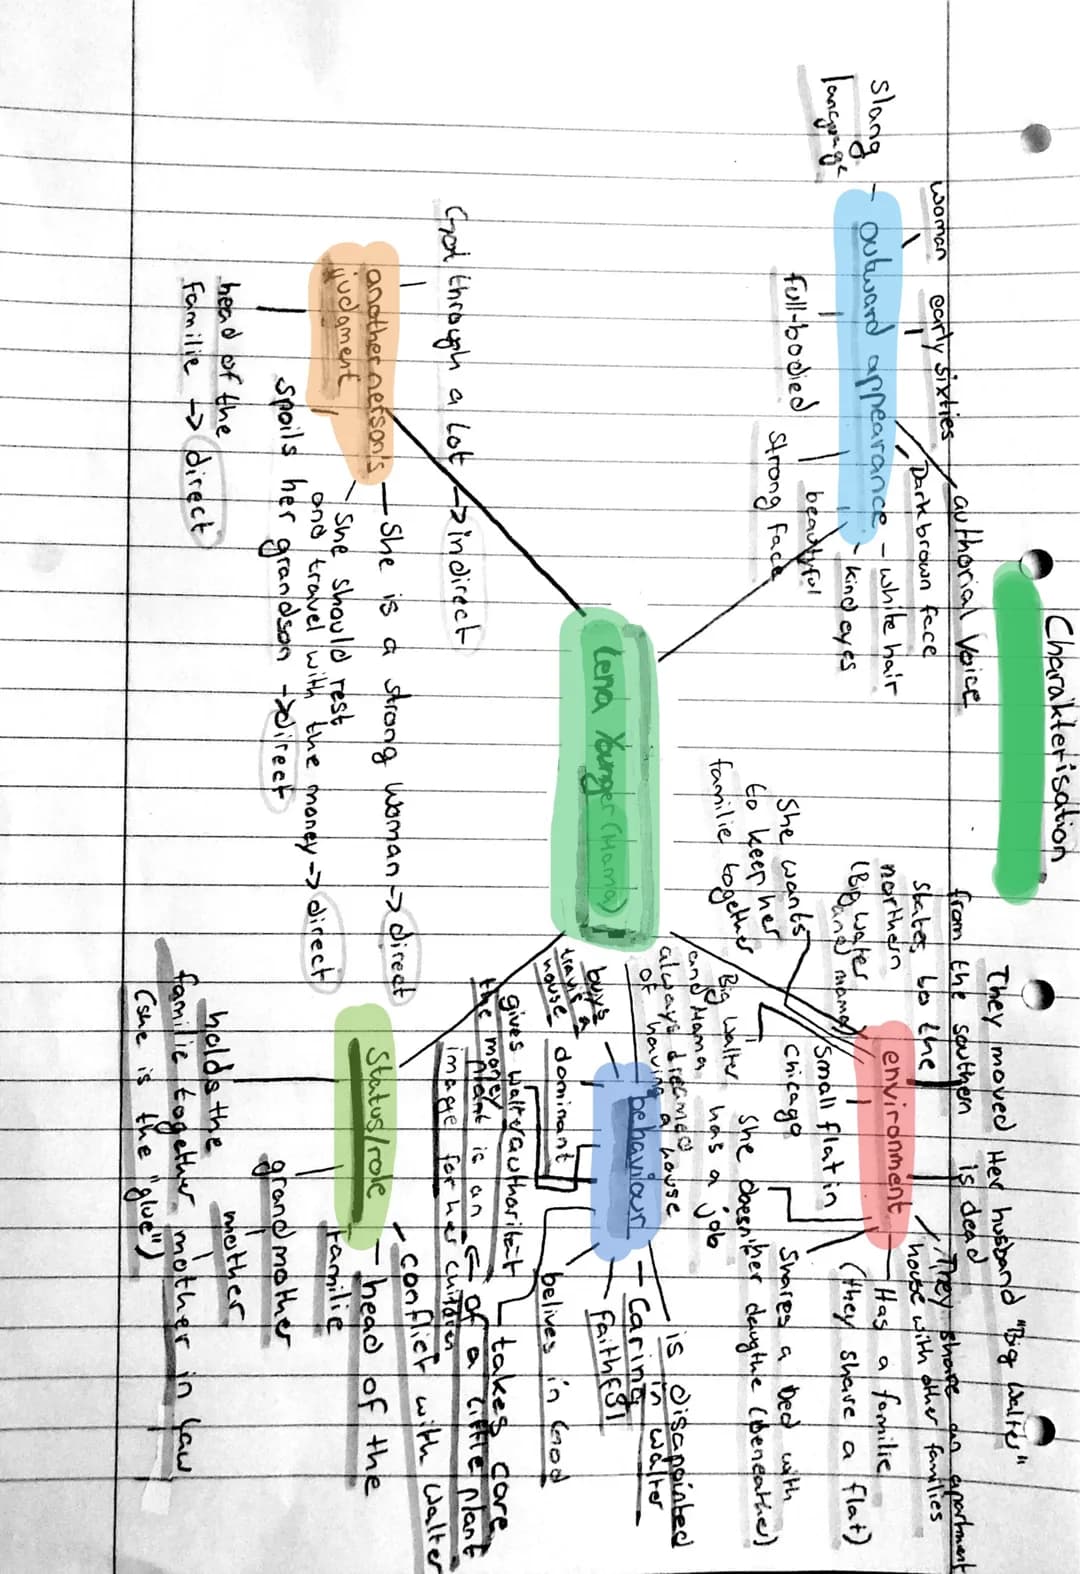 Charakterisation
authorial voice
woman
early sixties
Dark brown face
slang
language
outward appearance
white hair
kind eyes
full-bodied
beautyful
strong face
They moved
from the southen
states to the
northern
(Big Walter
and mama)
Her husband "Big Walter"
is dead
They share an apartment
house with other families
environment
Has a familie
(they share a flat)
Small flat in
Chicago
She wants
to keep her
familie together
Big Walter
and Mama
always dreamed
of having a house
She doesn't
has a job
Shares a bed with
her daugthe (beneather)
Lena Younger (Mama)
behaviour
is disapointed
in Walter
Caring
faithful
belives in God
buys a
house
dominant
gives Walter authoritit
the money
takes care
of a little plant
plant is an
image for her children
Got through a lot -> indirect
another person's
judgment
She is a strong woman -> direct
She should rest
and travel with the money -> direct
spoils her grandson -> direct
head of the
familie -> direct
Status/role
conflict with Walter
head of the
familie
grandmother
mother
mother in law
holds the
familie together
(she is the "glue")